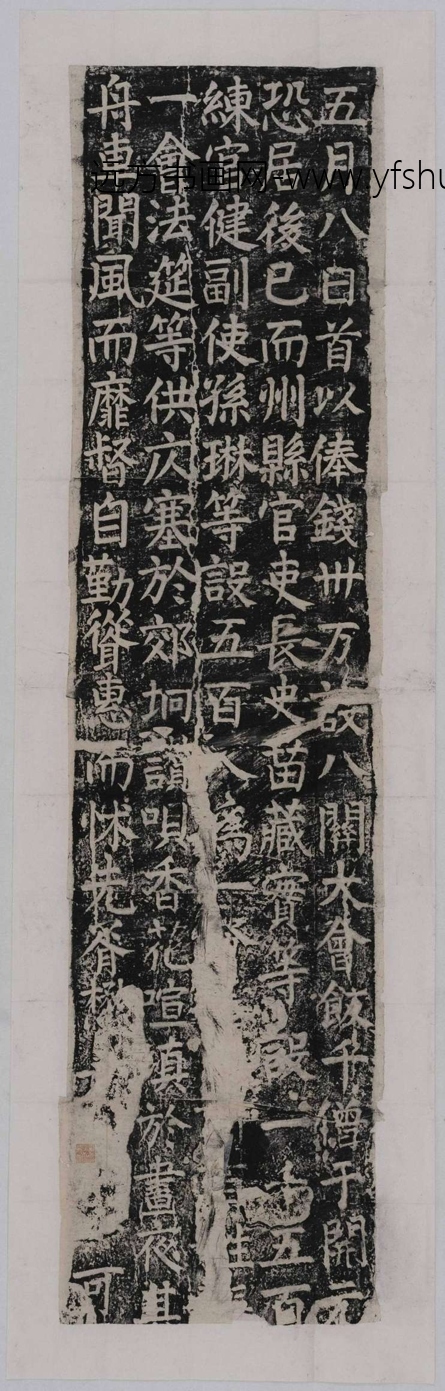 五月八日首以俸錢卅万設八關大會飯千僧于開元
恐居後已而州縣官吏長史苗藏實等設一千五百
練官健副使孫琳等設五百人為一會
一會法筵等供仄塞於郊坰讚唄香花喧填於晝夜其
舟車聞風而靡督自勤從聳惠而怵先胥 可
远方书画网-www.yfshu